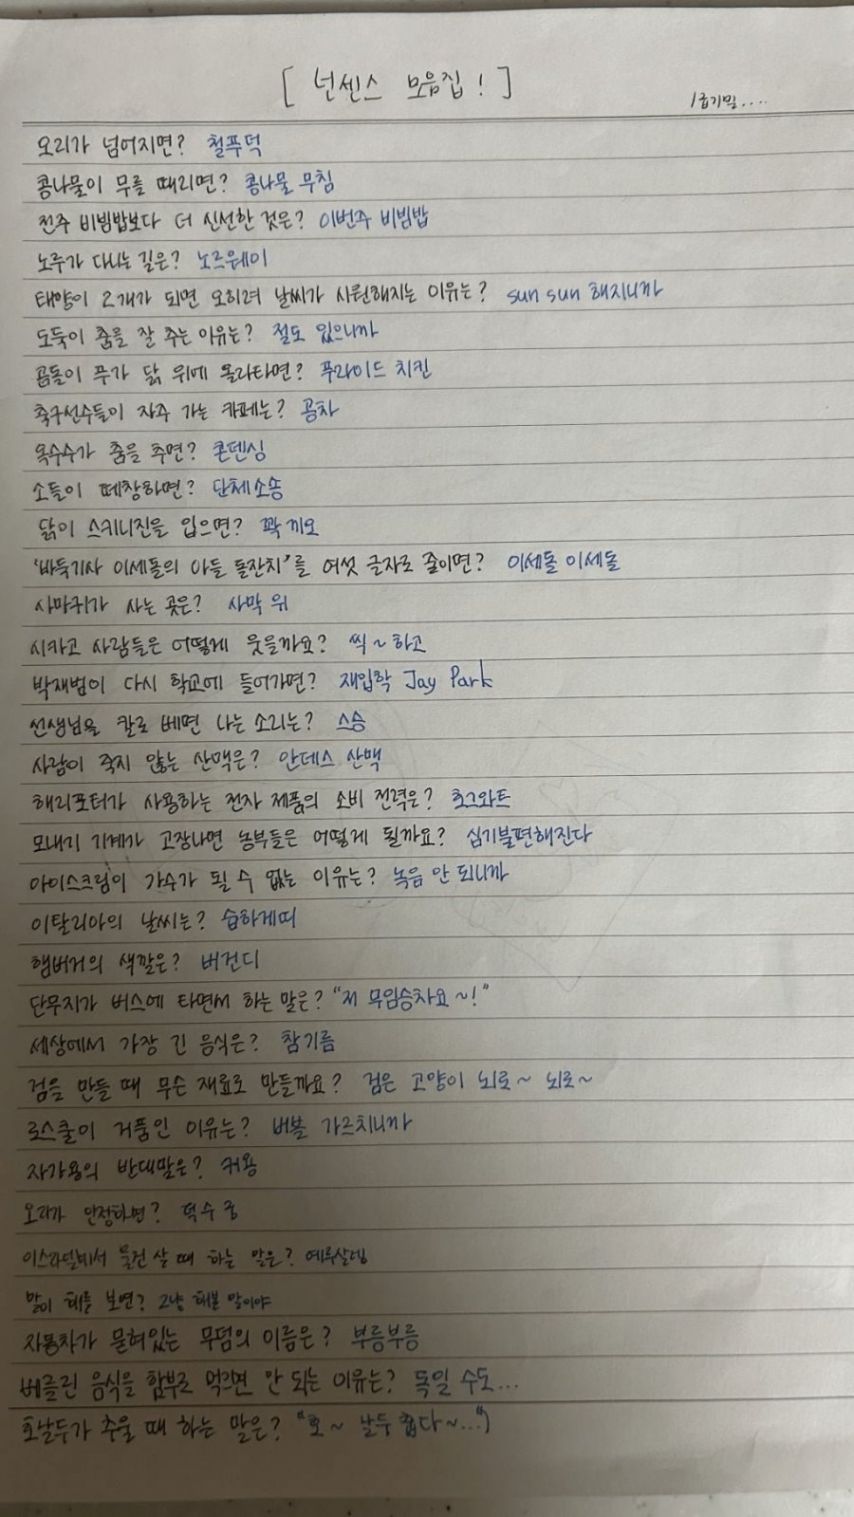 [ 넌센스 모음집 ! ]
1급기밀....
오리가 넘어지면? 철푸덕
콩나물이 무를 때리면? 콩나물 무침
전주 비빔밥보다 더 신선한 것은? 이번주 비빔밥
노루가 다니는 길은? 노르웨이
태양이 2개가 되면 오히려 날씨가 시원해지는 이유는? sun sun 해지니까
도둑이 춤을 잘 추는 이유는? 절도 있으니까
곰돌이 푸가 닭 위에 올라타면? 푸라이드 치킨
축구선수들이 자주 가는 카페는? 공차
옥수수가 춤을 추면? 콘덴싱
소들이 떼창하면? 단체소송
닭이 스키니진을 입으면? 꽉 끼오
'바둑기사 이세돌의 아들 돌잔치'를 여섯 글자로 줄이면? 이세돌 이세돌
사마귀가 사는 곳은? 사막 위
시카고 사람들은 어떻게 웃을까요? 씩~하고
박재범이 다시 학교에 들어가면? 재입학 Jay Park
선생님을 칼로 베면 나는 소리는? 스승
사람이 죽지 않는 산맥은? 안데스 산맥
해리포터가 사용하는 전자 제품의 소비 전력은? 호그와트
모내기 기계가 고장나면 농부들은 어떻게 될까요? 심기불편해진다
아이스크림이 가수가 될 수 없는 이유는? 녹음 안 되니까
이탈리아의 날씨는? 습하게띠
햄버거의 색깔은? 버건디
단무지가 버스에 타면서 하는 말은? "저 무임승차요~!"
세상에서 가장 긴 음식은? 참기름
검을 만들 때 무슨 재료로 만들까요? 검은 고양이 뇌로~ 뇌로~
로스쿨이 거품인 이유는? 버블 가르치니까
자가용의 반대말은? 커용
오리가 안정하면? 덕수궁
이스라엘에서 물건 살 때 하는 말은? 예루살렘
말이 해를 보면? 그냥 해본 말이야
자동차가 묻혀있는 무덤의 이름은? 부릉부릉
베를린 음식을 함부로 먹으면 안 되는 이유는? 독일 수도...
호날두가 추울 때 하는 말은? "호~ 날두 춥다~..."